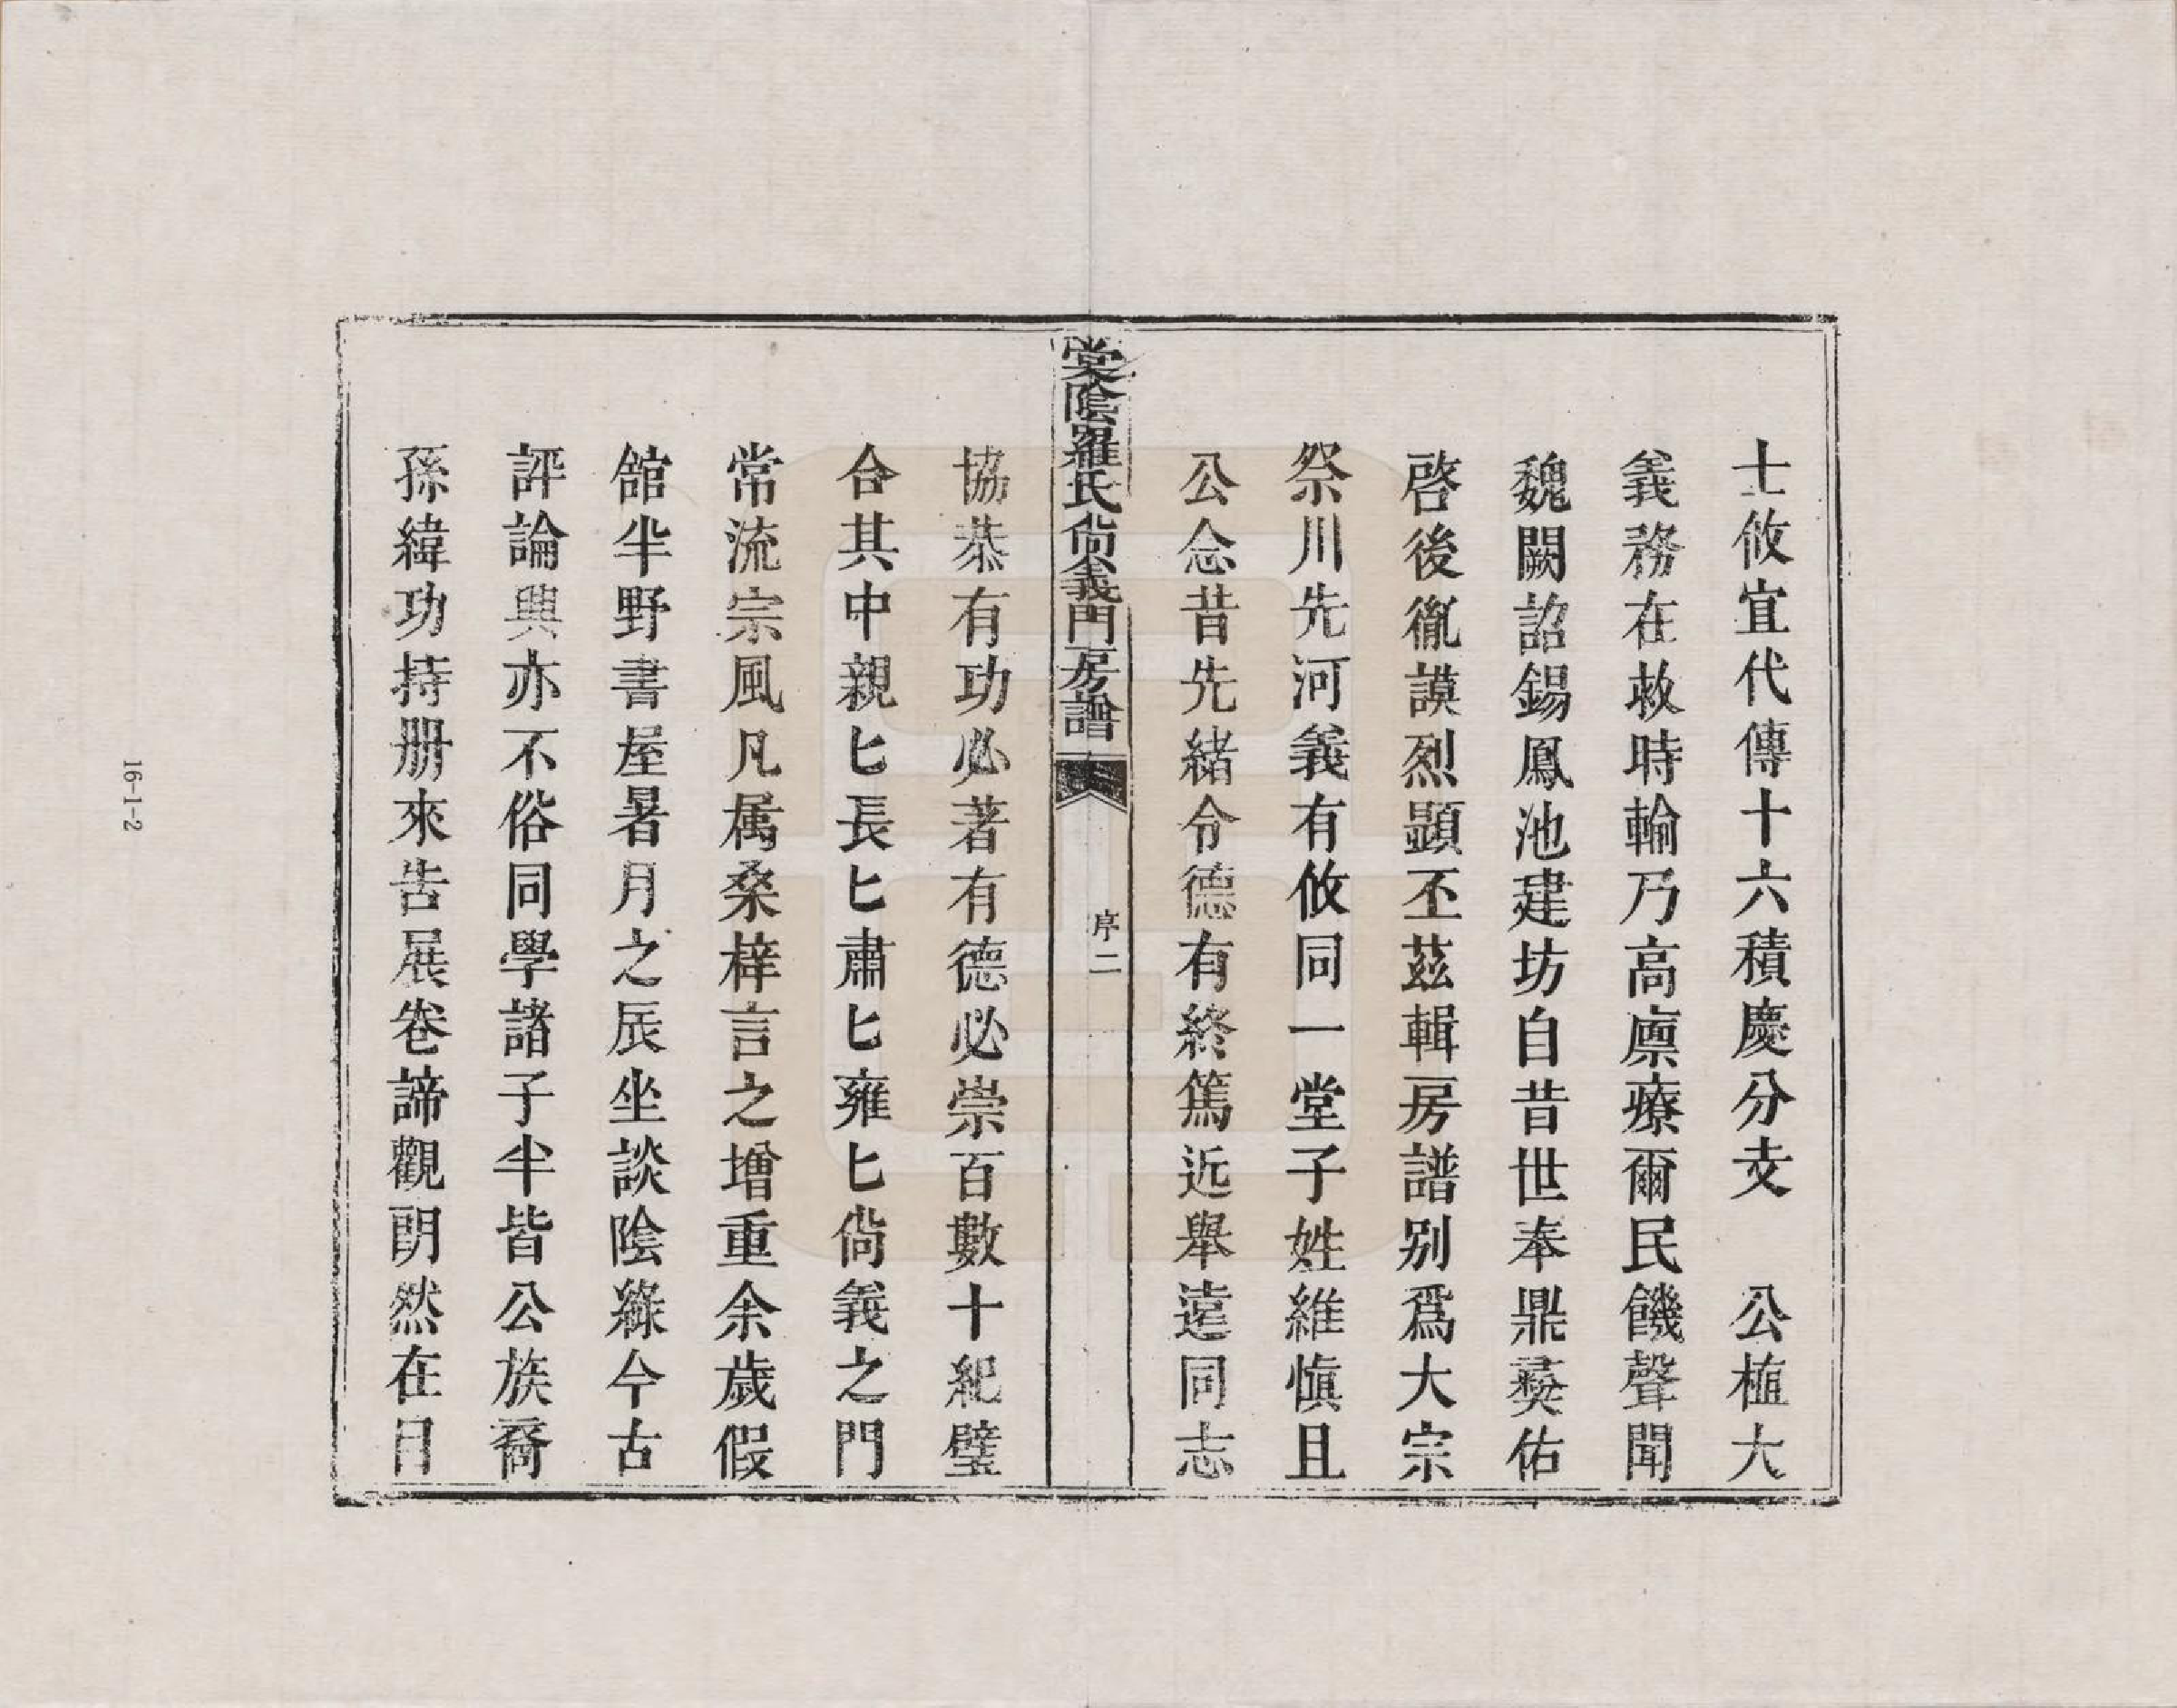 士攸宜代傳十六積慶分支　公植大
義務在救時輸乃高廪療爾民饑聲聞
魏闕詔錫鳳池建坊自昔世奉鼎彛佑
啓後胤謨烈顕丕茲輯房譜别爲大宗
祭川先河義有攸同一堂子姓維愼且
公念昔先緒令德有終篤近舉遠同志
棠陰羅氏尙義門房譜
序二
協恭有功必著有德必崇百數十紀璧
合其中親匕長匕肅匕雍匕尙義之門
常流宗風凡属桑梓言之增重余歲假
舘半野書屋暑月之辰坐談陰綠今古
評論興亦不俗同學諸子半皆公族裔
孫緯功持册來告展卷諦觀明然在目
16-1-2